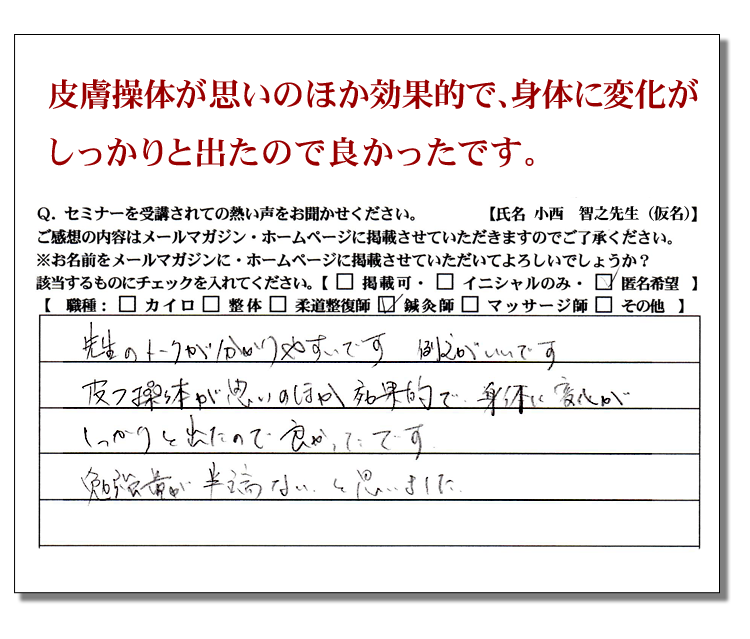 皮膚操体が思いのほか効果的で、身体に変化が
しっかりと出たので良かったです。
Q. セミナーを受講されての熱い声をお聞かせください。 【氏名 小西 智之先生（仮名）】
ご感想の内容はメールマガジン・ホームページに掲載させていただきますのでご了承ください。
※お名前をメールマガジンに・ホームページに掲載させていただいてよろしいでしょうか？
該当するものにチェックを入れてください。【 □ 掲載可・ □ イニシャルのみ・ ☑ 匿名希望 】
【 職種： □ カイロ □ 整体 □ 柔道整復師 ☑ 鍼灸師 □ マッサージ師 □ その他 】
先生のトークが分かりやすいです 例えがいいです
皮フ操体が思いのほか効果的で、身体に変化が
しっかりと出たので良かったです
勉強量が半端ない、と思いました。